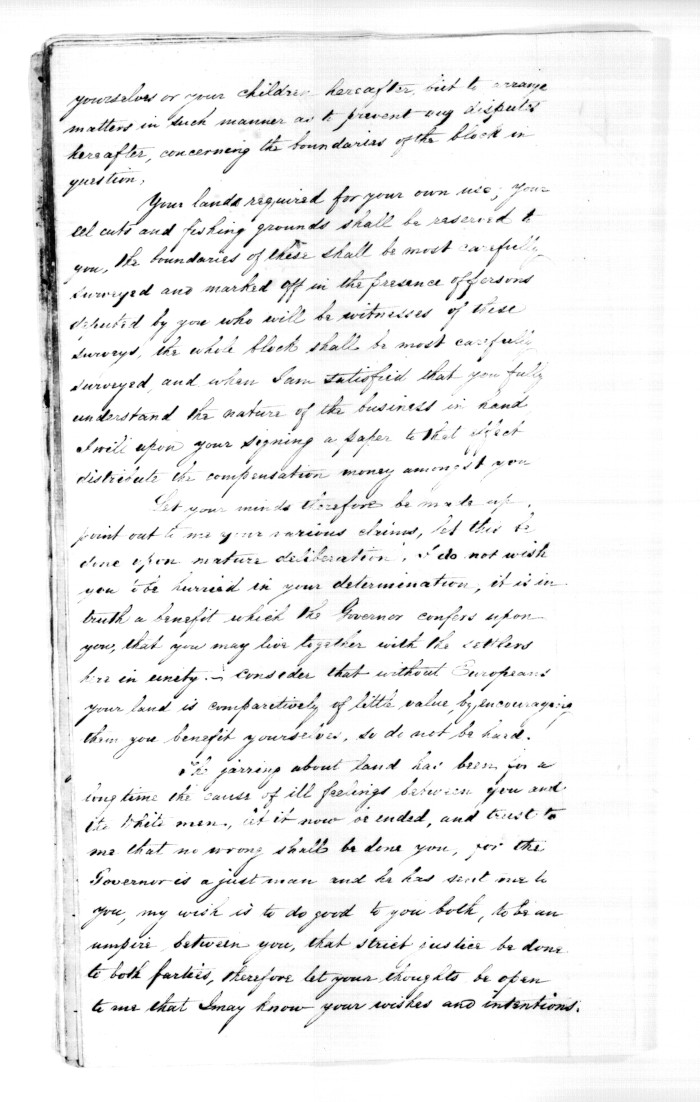 yourselves or your children hereafter, but to arrange
matters in such manner as to prevent any disputes
hereafter, concerning the boundaries of the block in
question,
Your lands required for your own use, your
eel cuts and fishing grounds shall be reserved to
you, the boundaries of these shall be most carefully
surveyed and marked off in the presence of persons
deputed by you who will be witnesses of these
surveys, the whole block shall be most carefully
surveyed, and when I am satisfied that you fully
understand the nature of the business in hand
I will upon your signing a paper to that effect
distribute the compensation money amongst you
Let your minds therefore be made up,
point out to me your various claims, let this be
done upon mature deliberation, I do not wish
you to be hurried in your determination, it is in
truth a benefit which the Governor confers upon
you, that you may live together with the settlers
here in unity. — consider that without Europeans
your land is comparetively of little value, by encourageing
them you benefit yourselves, so do not be hard.
The jarring about land has been for a
long time the cause of ill feelings between you and
the White men, let it now be ended, and trust to
me that no wrong shall be done you, for the
Governor is a just man and he has sent me to
you, my wish is to do good to you both, to be an
umpire between you, that strict justice be done
to both parties, therefore let your thoughts be open
to me that I may know your wishes and intentions.